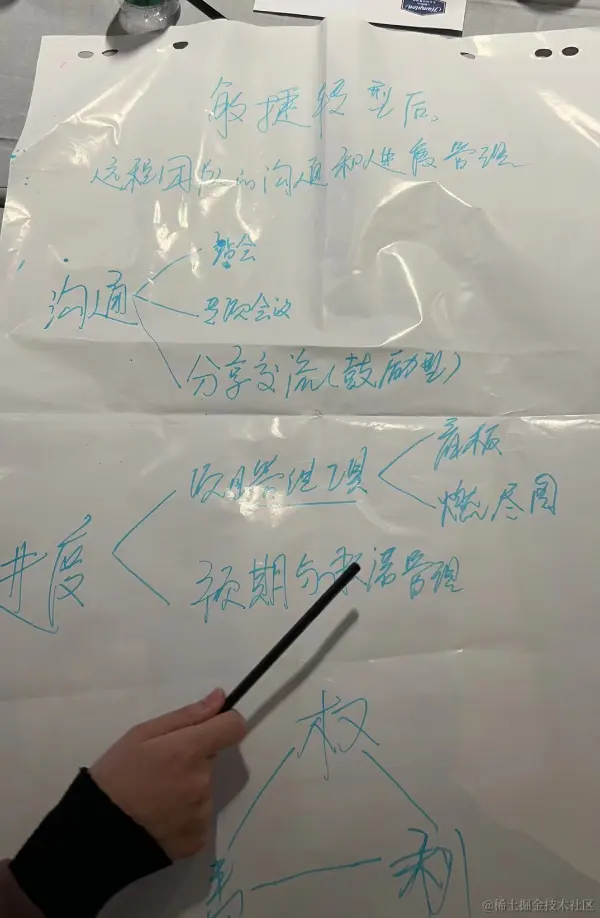 敏捷转型后,
远程团队的沟通和进度管理
沟通
站会
专项会议
分享交流(鼓励型)
进度
项目管理工具
看板
燃尽图
预期与承诺管理
权
利
@稀土掘金技术社区